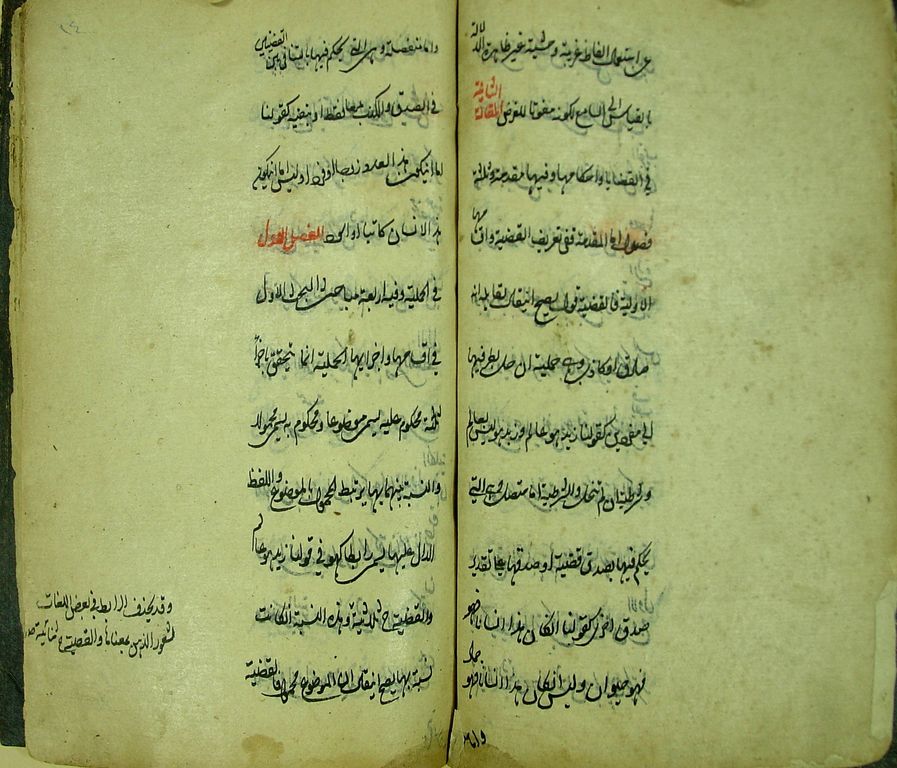 عن استعمال الفاظ غريبة وحشية غير ظاهرة الدلالة
بالقياس الى السامع لكونه مفوتا للغرض المقالة الثانية
في القضايا واحكامها وفيها مقدمة وثلثة
فصول اما المقدمة ففى تعريف القضية واقسامها
الاولية فالقضية قول يصح ان يقال لقايله انه
صادق او كاذب وهى حملية ان بطرفيها
الى مفردين كقولنا زيد هو عالم وزيد هو ليس بعالم
وشرطية ان لم تنحل والشرطية اما متصلة وهى التى
يحكم فيها بصدق قضية او صدقها على تقدير
صدق اخرى كقولنا انكان هذا انسانا فهو
فهو حيوان وليس انكان هذا انسانا فهو جماد
واما
واما منفصلة وهى التى يحكم فيها بالتنافى بين القضيتين
فى الصدق والكذب معا فقط او بنفيه كقولنا
اما ان يكون هذا العدد زوجا او فردا وليس اما ان يكون
هذا الانسان كاتبا او الفصل الاول
فى الحملية وفيه اربعة مباحث البحث الاول
فى اقسامها واجزايها الحملية انما تتحقق باجزاء
ثلثة محكوم عليه يسمى موضوعا ومحكوم به يسمى محمولا
والنسبة بينهما بها يرتبط المحمول بالموضوع واللفظ
الدال عليها يسمى رابطا كهو فى قولنا زيد هو عالم
والقضية ح ثلاثية وهذه النسبة انكانت
نسبة بها يصح ان يقال ان الموضوع محمول فالقضية
وقد يحذف الرابط فى بعض اللغات
لشعور الذهن بمعناها والقضية ح ثنائية